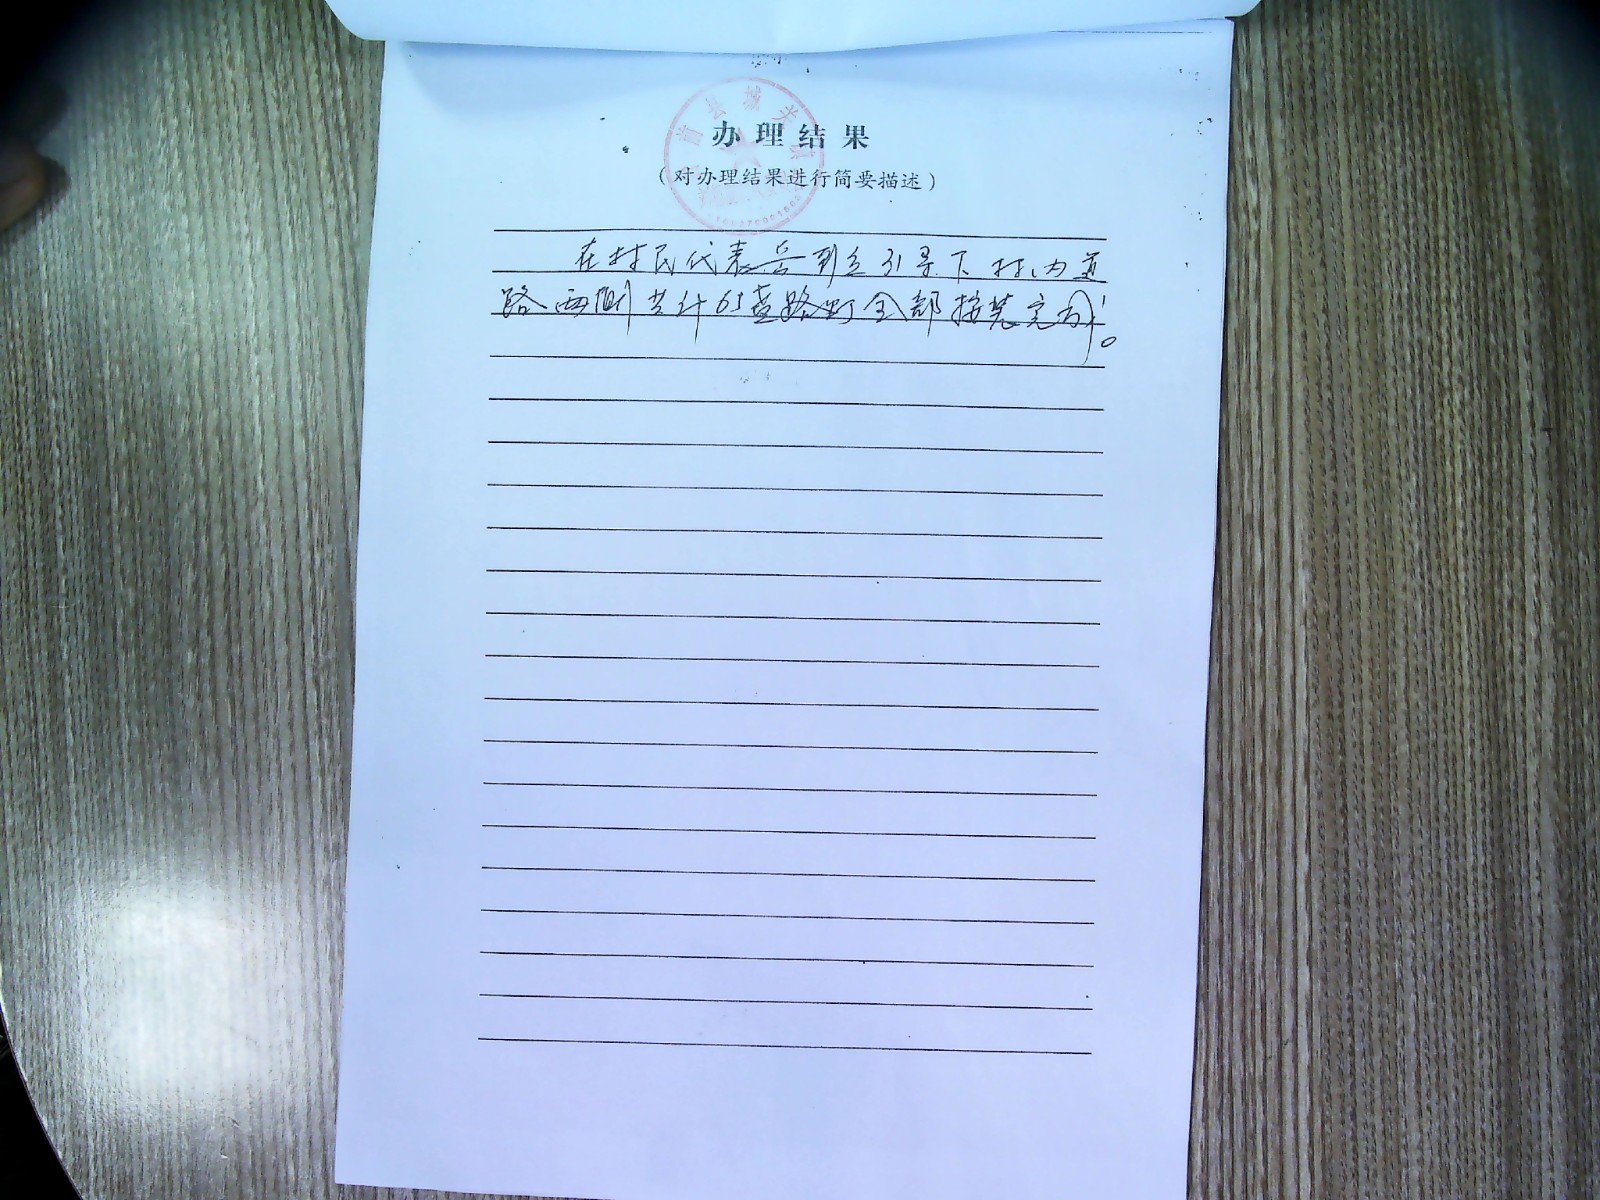 办理结果
（对办理结果进行简要描述）
县城关
在村民代表岳引导下村内道
路两侧共计65盏路灯全部按装完成。